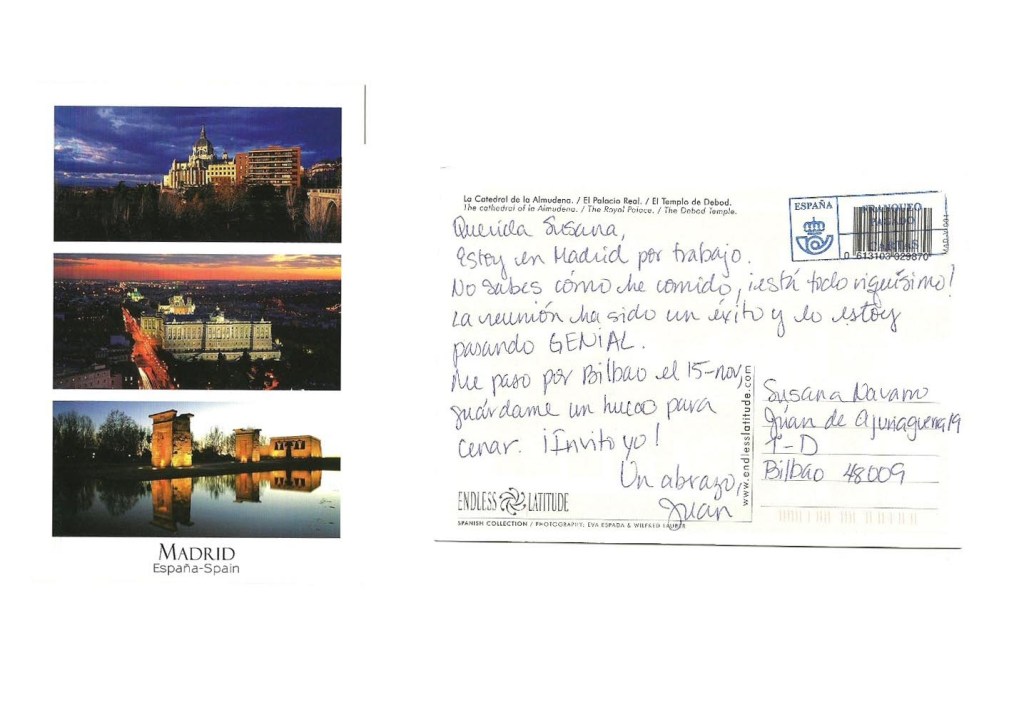 MADRID
España-Spain
La Catedral de la Almudena. / El Palacio Real. / El Templo de Debod.
The cathedral of la Almudena. / The Royal Palace. / The Debod Temple.
ESPAÑA
FRANQUEO
PAGADO
CARTAS
Querida Susana,
Estoy en Madrid por trabajo.
No sabes cómo he comido, ¡está todo riquísimo!
La reunión ha sido un éxito y lo estoy
pasando GENIAL.
Me paso por Bilbao el 15-nov,
guárdame un hueco para
cenar. ¡Invito yo!
Un abrazo,
Juan
www.endlesslatitude.com
Susana Navarro
Juan de Ajuriaguerra 19
-D
Bilbao 48009
ENDLESS LATITUDE
SPANISH COLLECTION / PHOTOGRAPHY: EVA ESPADA & WILFRED